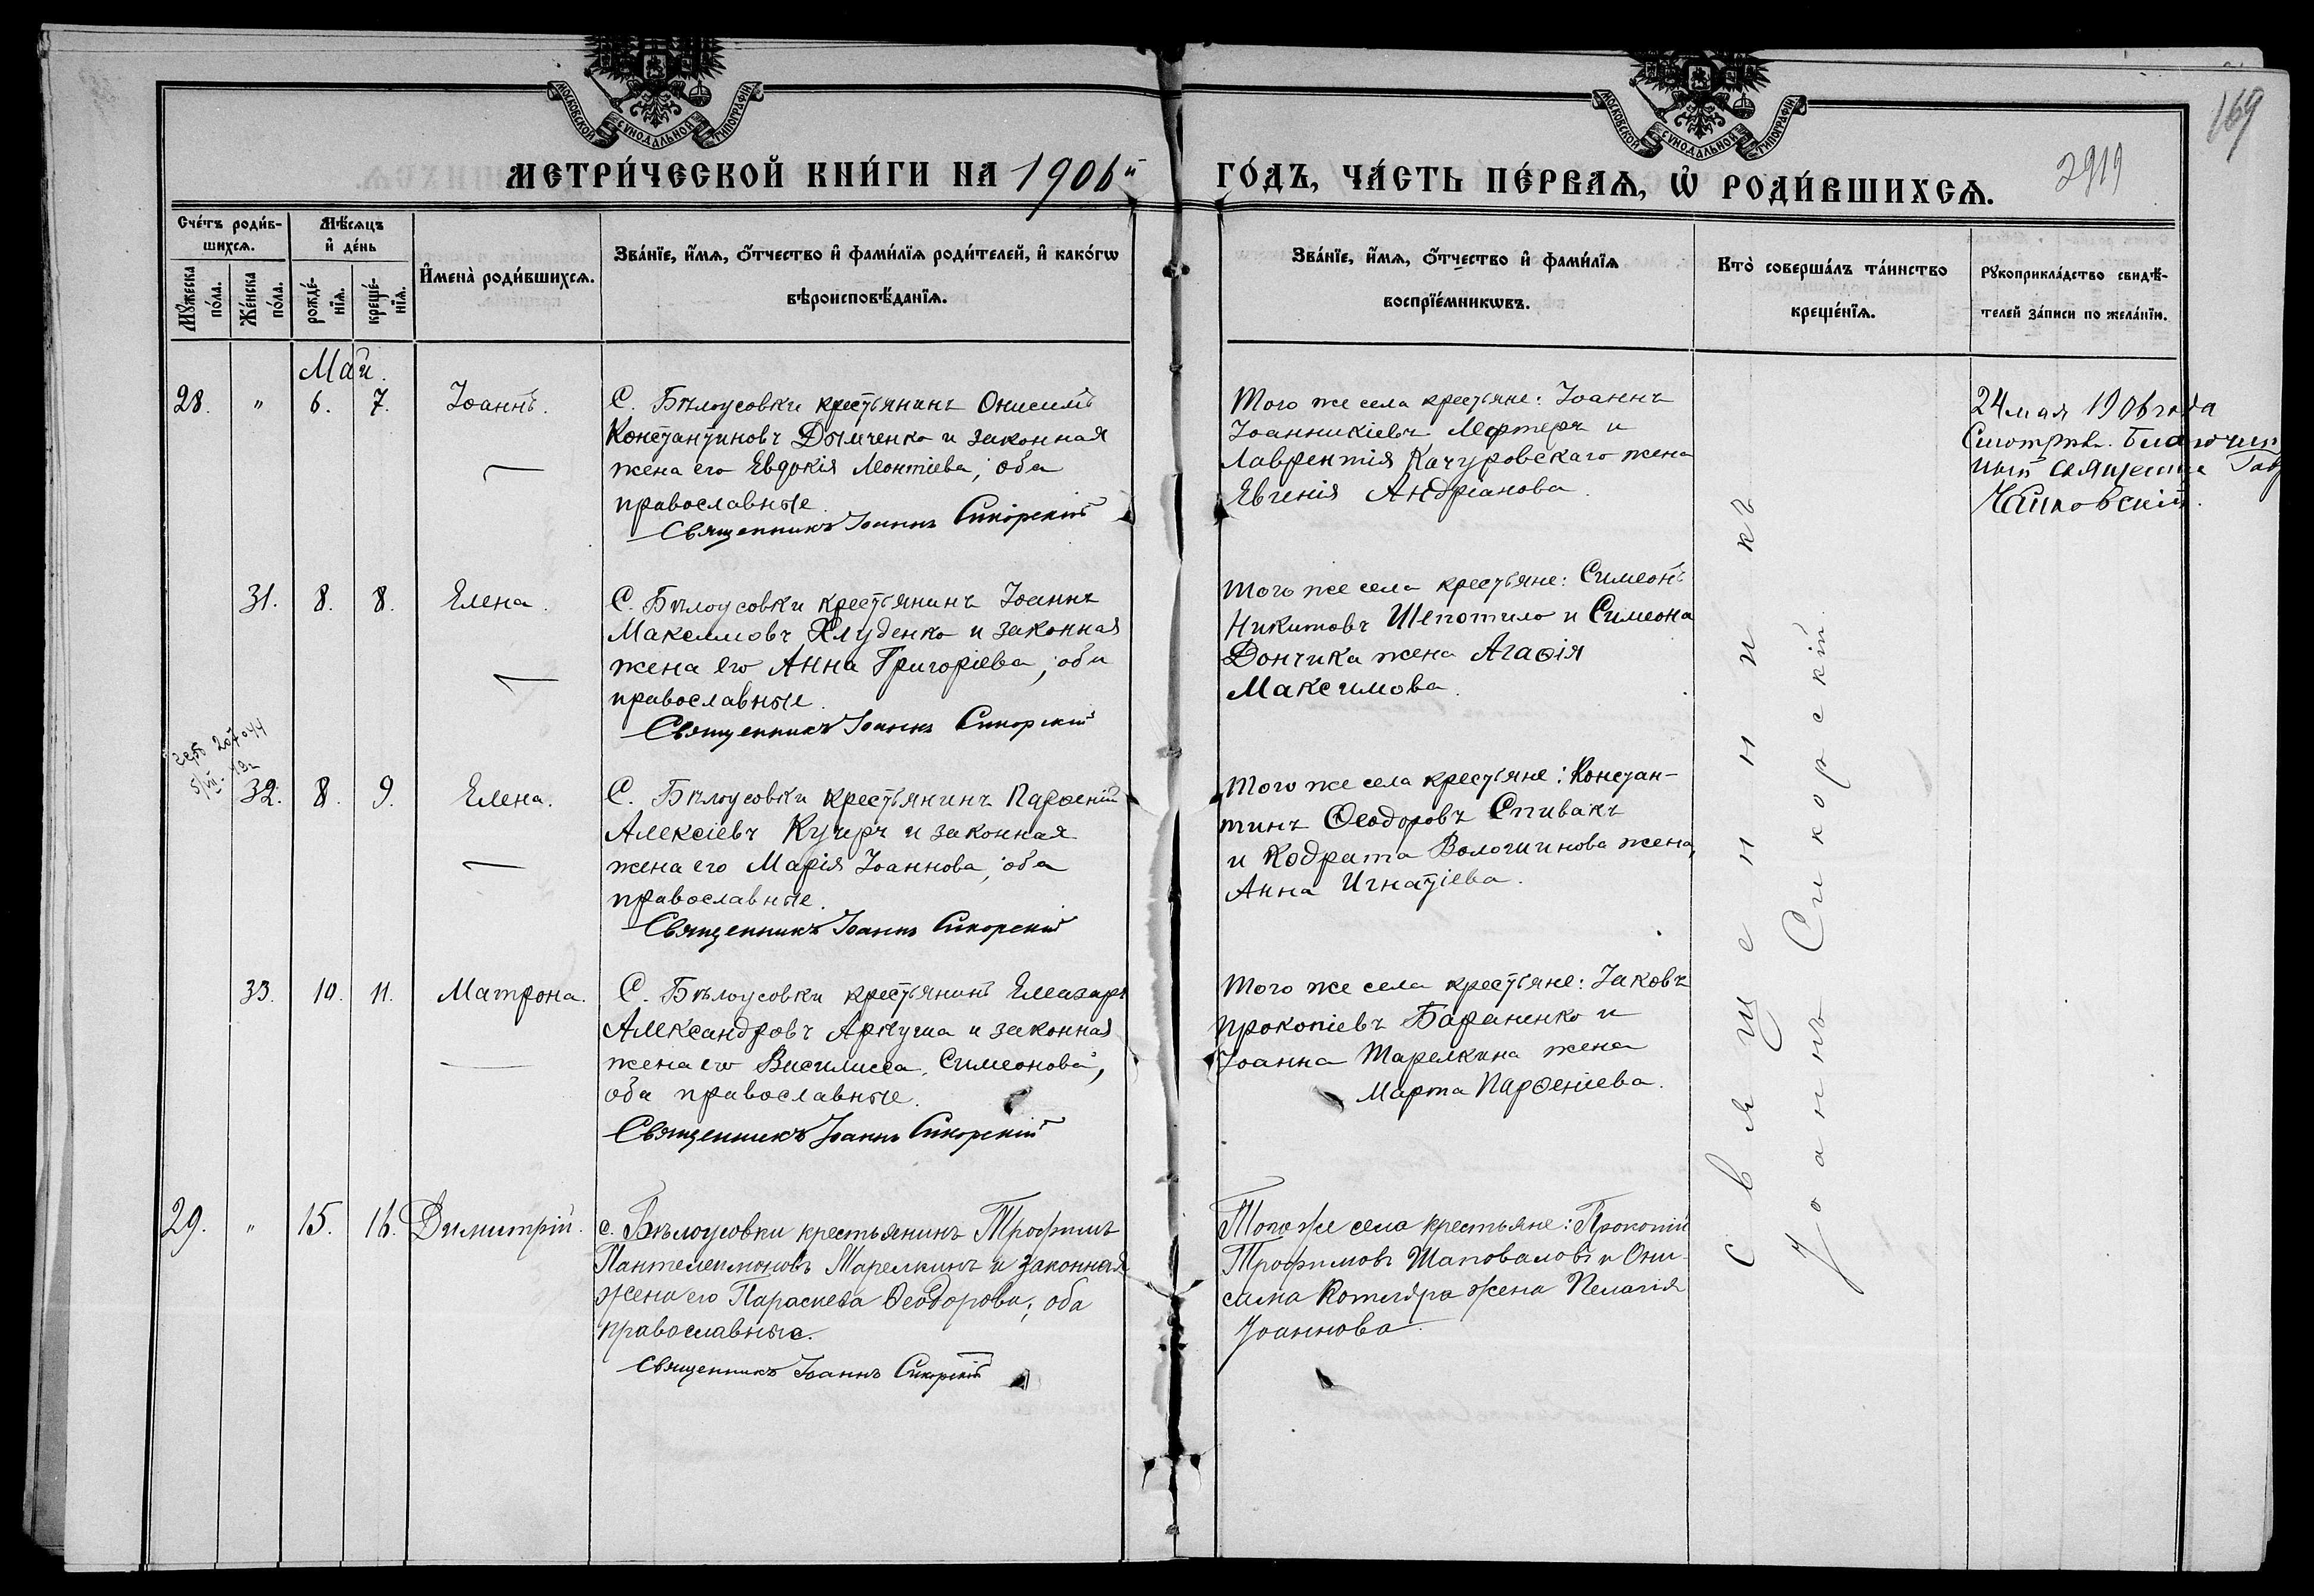 МОСКОВСКОЙ СУНОДАЛЬНОЙ ТИПОГРАФІИ.
МОСКОВСКОЙ СУНОДАЛЬНОЙ ТИПОГРАФІИ.
169
2919
МЕТРИ́ЧЕСКОЙ КНИ́ГИ НА 1906й
ГО́ДЪ, ЧА́СТЬ ПЕ́РВАѦ, Ѡ҆ РОДИ́ВШИХСѦ.
Сче́тъ роди́в-
шихсѧ.
Мѣ́сяцъ
и҆ де́нь
Мꙋ́жеска по́ла.
Же́нска по́ла.
рожде́-нїѧ.
креще́-нїѧ.
И҆мена̀ роди́вшихсѧ.
Зва́нїе, и҆́мѧ, ѻ҆́тчество и҆ фами́лїѧ роди́телей, и҆ како́гѡ
вѣроисповѣ́данїѧ.
Зва́нїе, и҆́мѧ, ѻ҆́тчество и҆ фами́лїѧ
воспрїе́мникѡвъ.
Кто̀ соверша́лъ та́инство
креще́нїѧ.
Рꙋкоприкла́дство свидѣ́-
телей за́писи по жела́нїю.
Май.
28. " 6. 7. Іоаннъ.
С. Бѣлоусовки крестьянинъ Онисимъ
Константиновъ Дымченко и законная
жена его Евдокія Леонтіева; оба
православные.
Священникъ Іоаннъ Сикорскій
Того же села крестьяне: Іоаннъ
Іоанникіевъ Мефтеръ и
Лаврентія Качуровскаго жена
Евгенія Андріанова.
24 мая 1906 года
Смотрѣлъ. Благочин
ный священни Гавр
31. 8. 8. Елена.
С. Бѣлоусовки крестьянинъ Іоаннъ
Максимовъ Хлуденко и законная
жена его Анна Григоріева; оба
православные.
Священникъ Іоаннъ Сикорскій
Того же села крестьяне: Симеонъ
Никитовъ Шепотило и Симеона
Дончика жена Агаѳія
Максимова.
32. 8. 9. Елена.
С. Бѣлоусовки крестьянинъ Парѳеній
Алексіевъ Кучеръ и законная
жена его Марія Іоаннова; оба
православные.
Священникъ Іоаннъ Сикорскій
Того же села крестьяне: Констан-
тинъ Ѳеодоровъ Спивакъ
и Кодрата Волошинова жена,
Анна Игнатіева.
33. 10. 11. Матрона.
С. Бѣлоусовки крестьянинъ Елеазаръ
Александровъ Аркуша и законная
жена его Василисса Симеонова;
оба православные.
Священникъ Іоаннъ Сикорскій
Того же села крестьяне: Іаковъ
Прокопіевъ Бараненко и
Іоанна Тарелкина жена
Марта Парѳеніева.
29. " 15. 16. Димитрій.
с. Бѣлоусовки крестьянинъ Трофимъ
Пантелеимоновъ Тарелкинъ и законная
жена его Параскева Ѳеодорова; оба
православные.
Священникъ Іоаннъ Сикорскій
Того же села крестьяне: Прокопій
Трофимовъ Шаповаловъ и Они-
сима жена Пелагія
Іоаннова.
Священникъ
Іоаннъ Сикорскій.